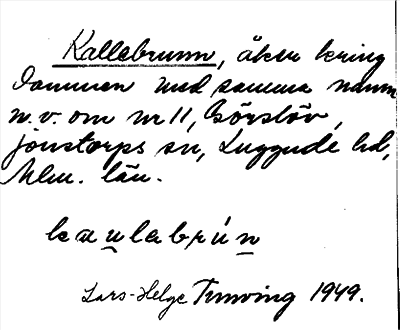 Kallebrunn, åker kring
dammen med samma namn
n.v. om nr 11, Görslöv,
Jonstorps sn, Luggude hd,
Mlm. län.
kau̯labrún
Lars-Helge Tunving 1949.